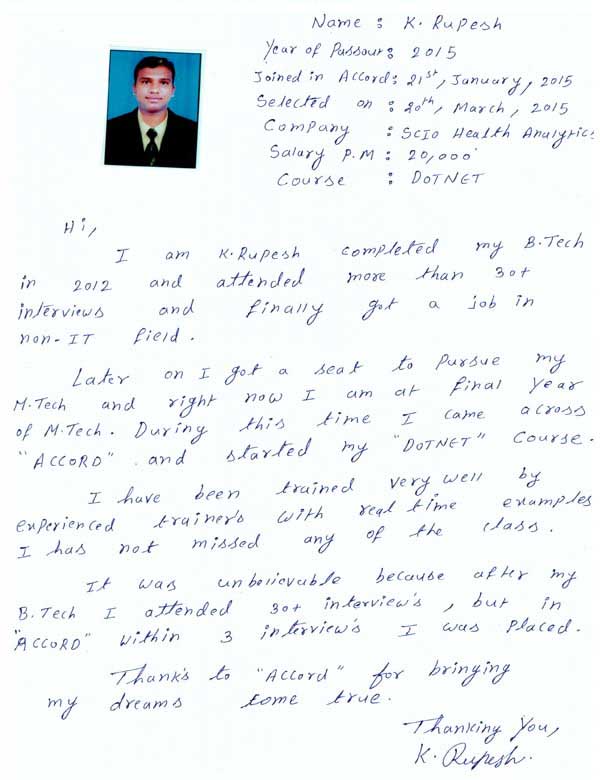 Name : K. Rupesh
Year of Passout : 2015
Joined in Accord : 21st, January, 2015
Selected on : 20th, March, 2015
Company : SCIO Health Analytics
Salary P.M : 20,000
Course : DOTNET
Hi,
I am K.Rupesh completed my B.Tech
in 2012 and attended more than 30+
interviews and finally got a job in
non-IT field.
Later on I got a seat to pursue my
M.Tech and right now I am at final year
of M.Tech. During this time I came across
"ACCORD" and started my "DOTNET" Course.
I have been trained very well by
experienced trainer's with real time examples
I has not missed any of the class.
It was unbelievable because after my
B.Tech I attended 30+ interview's, but in
"ACCORD" within 3 interview's I was placed.
Thanks to "Accord" for bringing
my dreams come true.
Thanking You,
K. Rupesh.